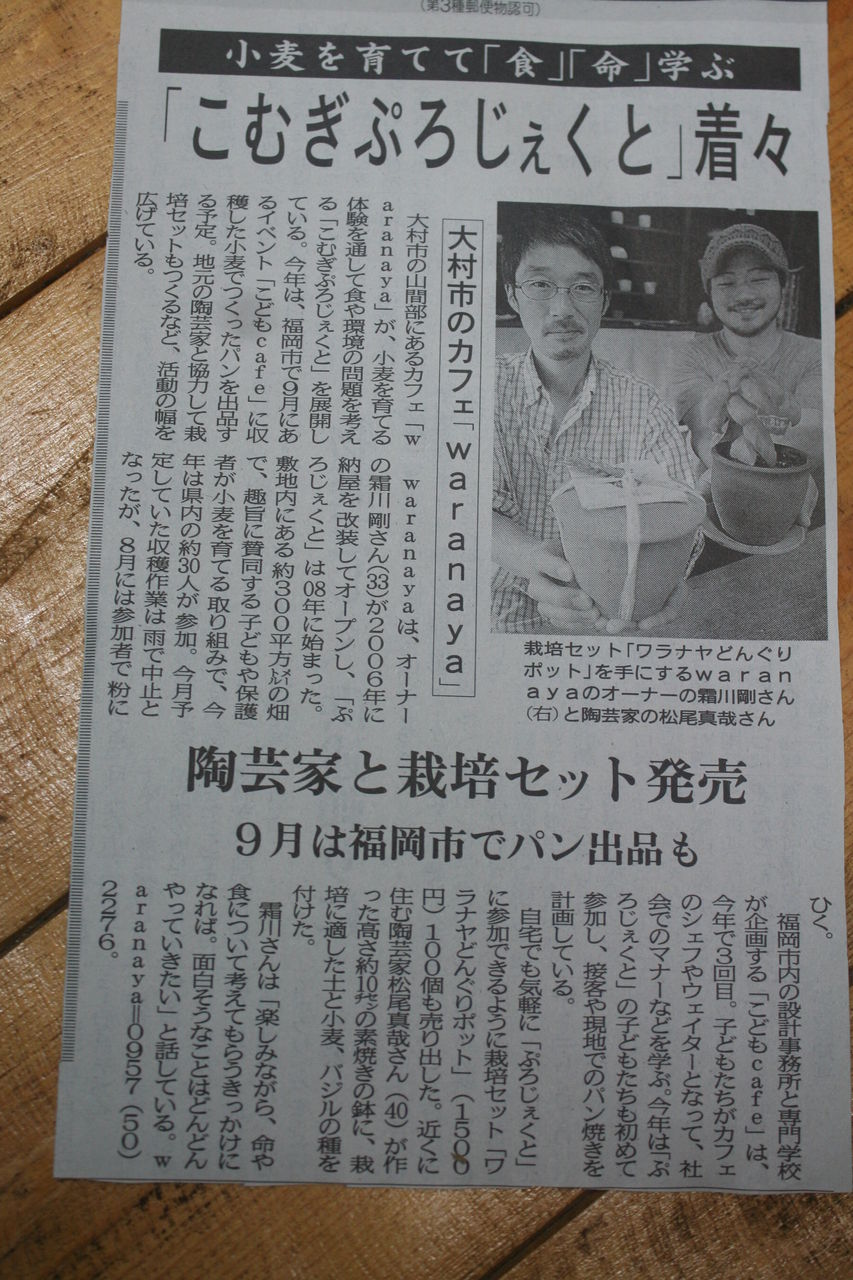 (第3種郵便物認可)
小麦を育てて「食」「命」学ぶ
「こむぎぷろじぇくと」着々
大村市のカフェ「waranaya」
大村市の山間部にあるカフェ「w
aranaya」が、小麦を育てる
体験を通して食や環境の問題を考え
る「こむぎぷろじぇくと」を展開し
ている。今年は、福岡市で9月にあ
るイベント「こどもcafe」に収
穫した小麦でつくったパンを出品す
る予定。地元の陶芸家と協力して栽
培セットもつくるなど、活動の幅を
広げている。
waranayaは、オーナー
の霜川剛さん(33)が2006年に
納屋を改装してオープンし、「ぷ
ろじぇくと」は08年に始まった。
敷地内にある約300平方㍍の畑
で、趣旨に賛同する子どもや保護
者が小麦を育てる取り組みで、今
年は県内の約30人が参加。今月予
定していた収穫作業は雨で中止と
なったが、8月には参加者で粉に
栽培セット「ワラナヤどんぐり
ポット」を手にするwaran
ayaのオーナーの霜川剛さん
(右)と陶芸家の松尾真哉さん
陶芸家と栽培セット発売
9月は福岡市でパン出品も
ひく。
福岡市内の設計事務所と専門学校
が企画する「こどもcafe」は、
今年で3回目。子どもたちがカフェ
のシェフやウェイターとなって、社
会でのマナーなどを学ぶ。今年は「ぷ
ろじぇくと」の子どもたちも初めて
参加し、接客や現地でのパン焼きを
計画している。
自宅でも気軽に「ぷろじぇくと」
に参加できるように栽培セット「ワ
ラナヤどんぐりポット」(1500
円)100個も売り出した。近くに
住む陶芸家松尾真哉さん(40)が作
った高さ約10㌢の素焼きの鉢に、栽
培に適した土と小麦、バジルの種を
付けた。
霜川さんは「楽しみながら、命や
食について考えてもらうきっかけに
なれば。面白そうなことはどんどん
やっていきたい」と話している。w
aranaya=0957(50)
2276。